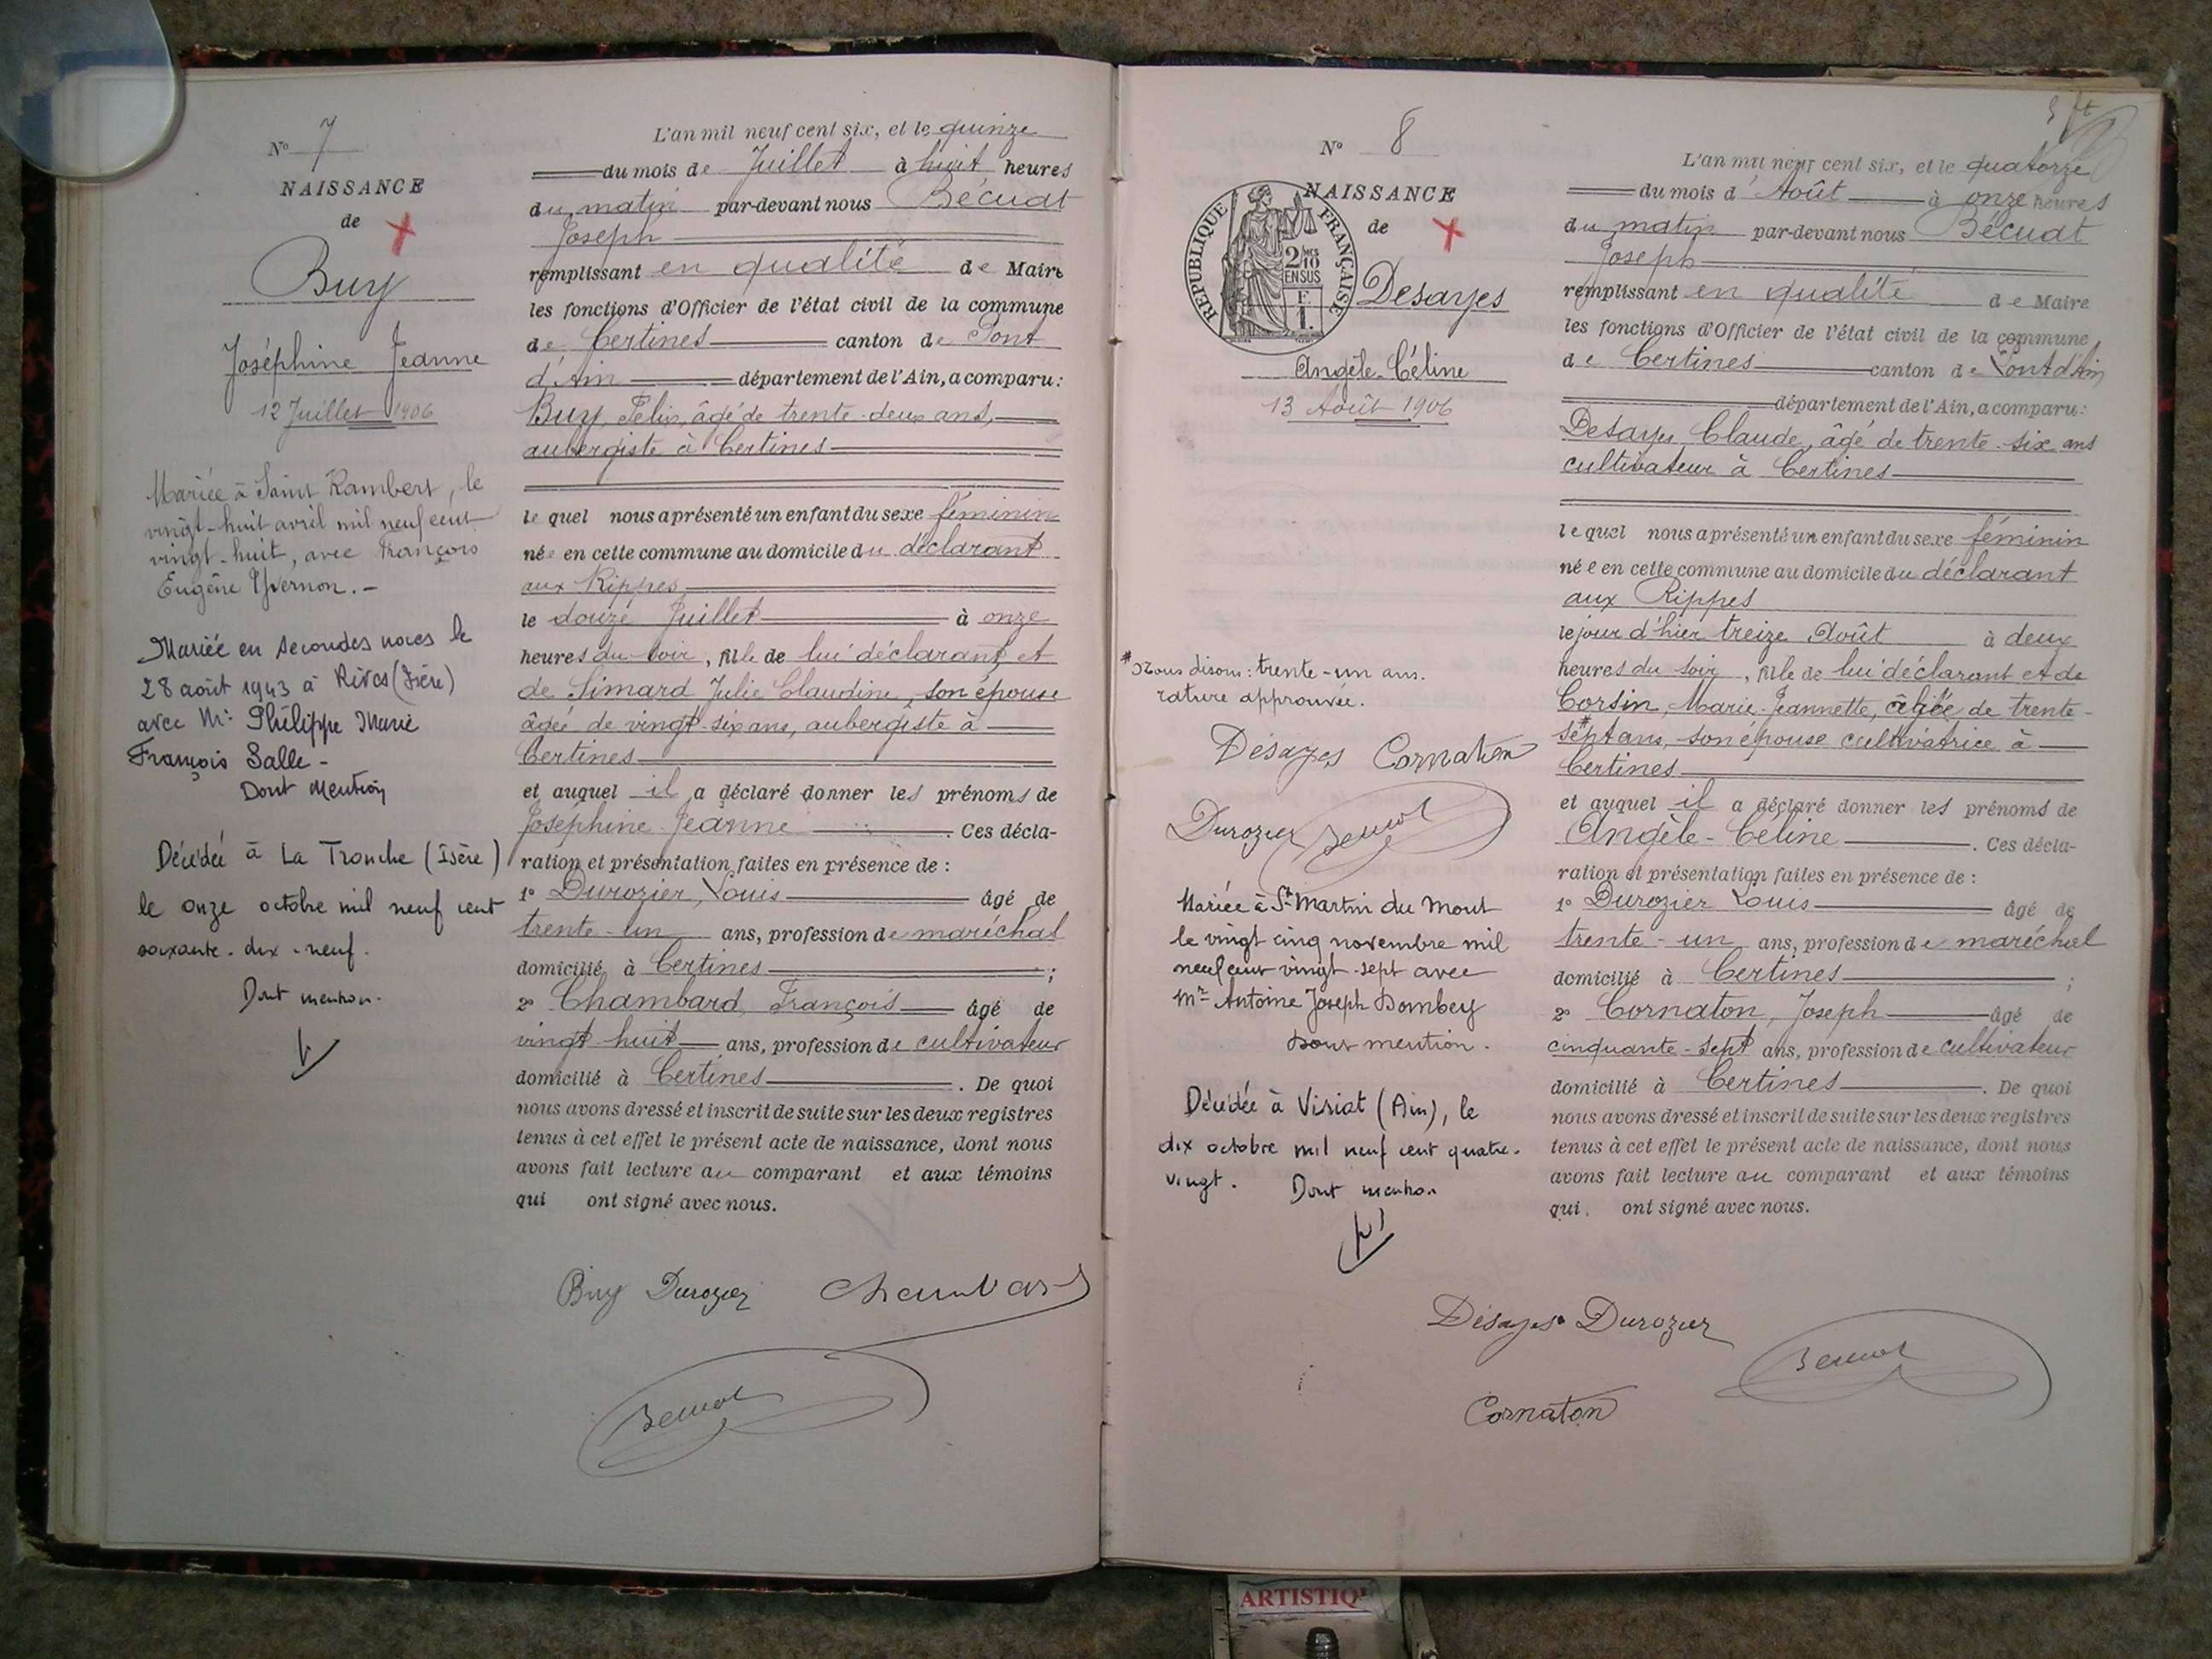 N° 7
NAISSANCE
de
Buy
Joséphine Jeanne
12 Juillet 1906
Mariée à Saint Rambert, le
vingt-huit avril mil neuf cent
vingt-huit, avec François
Eugène Yvernon.-
Mariée en secondes noces le
28 août 1943 à Rives (Isère)
avec Mr Philippe Marie
François Salle -
Dont Mention
Décédée à La Tronche (Isère)
le onze octobre mil neuf cent
soixante-dix-neuf.
Dont mention.
L'an mil neuf cent six, et le quinze
du mois de Juillet à huit heures
du matin par-devant nous Bécuat
Joseph
remplissant en qualité de Maire
les fonctions d'Officier de l'état civil de la commune
de Certines canton de Pont
d'Ain département de l'Ain, a comparu:
Buy, Félix, âgé de trente-deux ans,
aubergiste à Certines
le quel nous a présenté un enfant du sexe féminin
née en cette commune au domicile du déclarant
aux Rippes
le douze Juillet à onze
heures du soir, fille de lui déclarant et
de Simard Julie Claudine, son épouse
âgée de vingt-six ans, aubergiste à
Certines
et auquel il a déclaré donner les prénoms de
Joséphine Jeanne. Ces décla-
ration et présentation faites en présence de :
1° Durozier, Louis âgé de
trente-un ans, profession de maréchal
domicilié à Certines ;
2° Chambard, François âgé de
vingt-huit ans, profession de cultivateur
domicilié à Certines. De quoi
nous avons dressé et inscrit de suite sur les deux registres
tenus à cet effet le présent acte de naissance, dont nous
avons fait lecture au comparant et aux témoins
qui ont signé avec nous.
Buy Durozier Chambard
Bécuat
N° 8
NAISSANCE
de
RÉPUBLIQUE FRANÇAISE
2/10
EN SUS
F.
1.
Desayes
Angèle-Céline
13 Août 1906
#Nous disons: trente-un ans.
rature approuvée.
Désayes Cornaton
Durozier Bécuat
Mariée à St Martin du Mont
le vingt cinq novembre mil
neuf cent vingt-sept avec
Mr Antoine Joseph Dombey
Dont mention.
Décédée à Viriat (Ain), le
dix octobre mil neuf cent quatre-
vingt. Dont mention
L'an mil neuf cent six, et le quatorze
du mois d'Août à onze heures
du matin par-devant nous Bécuat
Joseph
remplissant en qualité de Maire
les fonctions d'Officier de l'état civil de la commune
de Certines canton de Pont d'Ain
département de l'Ain, a comparu:
Desayes Claude, âgé de trente-six ans
cultivateur à Certines
lequel nous a présenté un enfant du sexe féminin
née en cette commune au domicile du déclarant
aux Rippes
le jour d'hier treize Août à deux
heures du soir, fille de lui déclarant et de
Corsin, Marie-Jeannette, âgée de trente-
#sept ans, son épouse cultivatrice à
Certines
et auquel il a déclaré donner les prénoms de
Angèle-Céline. Ces décla-
ration et présentation faites en présence de :
1° Durozier Louis âgé de
trente-un ans, profession de maréchal
domicilié à Certines ;
2° Cornaton, Joseph âgé de
cinquante-sept ans, profession de cultivateur
domicilié à Certines. De quoi
nous avons dressé et inscrit de suite sur les deux registres
tenus à cet effet le présent acte de naissance, dont nous
avons fait lecture au comparant et aux témoins
qui ont signé avec nous.
Désayes Durozier
Bécuat
Cornaton
ARTISTIQ